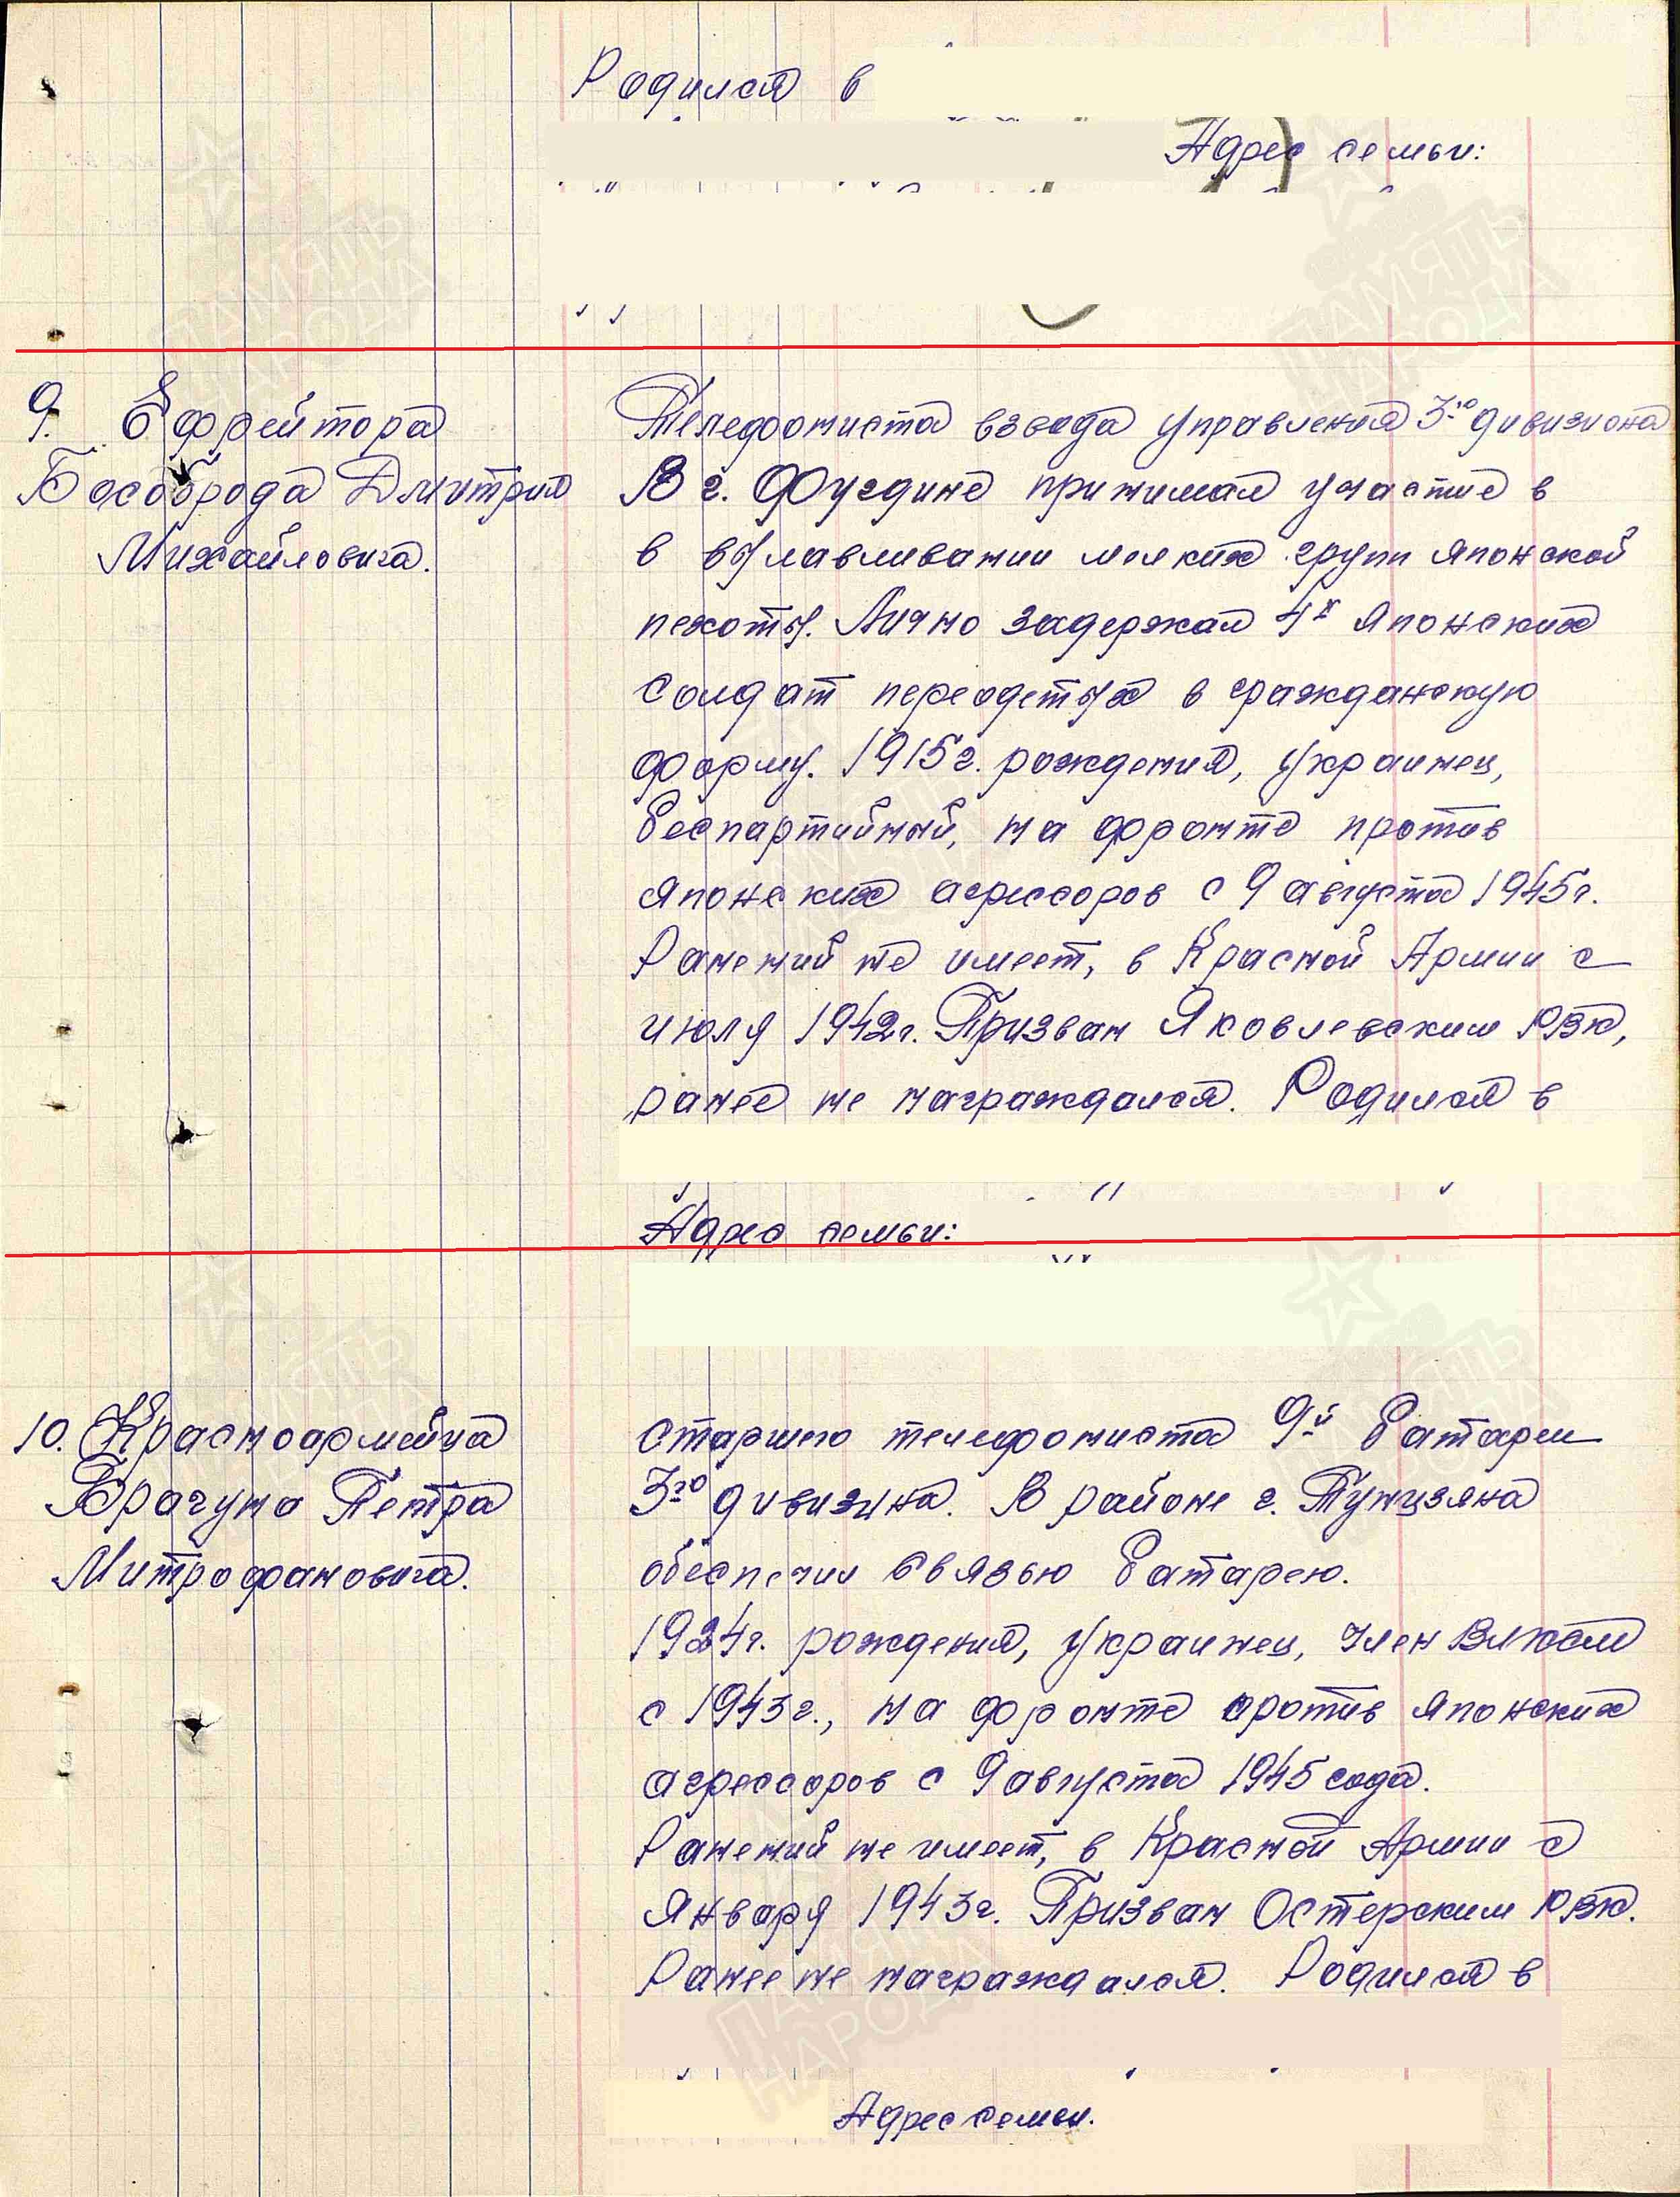 Родился в
Адрес семьи:
9. Ефрейтора
Бособрода Дмитрия
Михайловича.
Телефониста взвода управления 3го дивизиона
В г. Фугдине принимал участие в
в вылавливании мелких групп японской
пехоты. Лично задержал 4х японских
солдат переодетых в гражданскую
форму. 1915г. рождения, украинец,
беспартийный, на фронте против
японских агрессоров с 9 августа 1945г.
Ранений не имеет, в Красной Армии с
июля 1942г. Призван Яковлевским РВК,
ранее не награждался. Родился в
Адрес семьи:
10. Красноармейца
Брагуна Петра
Митрофановича.
старшего телефониста 9й батареи
3го дивизина. В районе г. Тунцзяна
обеспечил связью батарею.
1924г. рождения, украинец, член ВЛКСМ
с 1943г., на фронте против японских
агрессоров с 9 августа 1945 года.
Ранений не имеет, в Красной Армии с
января 1943г. Призван Остерским РВК.
Ранее не награждался. Родился в
Адрес семьи.
ПАМЯТЬ
НАРОДА